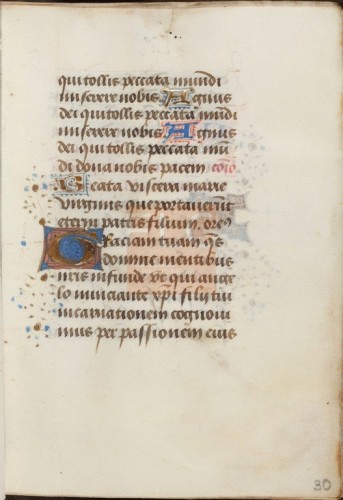 qui tollis peccata mundi
miserere nobis Agnus
dei qui tollis peccata mūdi
miserere nobis Agnus
dei qui tollis peccata mū
di dona nobis pacem cōio
Beata viscera marie
virginis que portaverūt
eterni patris filium. oreꝰ
Graciam tuam qs̄
domine mentibus
nris infunde vt qui ange
lo nunciante xp̄i filij tui
incarnationem cognoui
mus per passionem eius
30